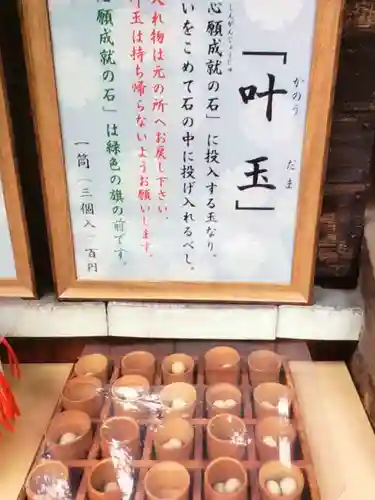 「叶玉」
かのう だま
しんがんじょうじゅ
心願成就の石」に投入する玉なり。
いをこめて石の中に投げ入れるべし。
入れ物は元の所へお戻し下さい。
叶玉は持ち帰らないようお願いします。
心願成就の石」は緑色の旗の前です。
一筒（三個入）百円